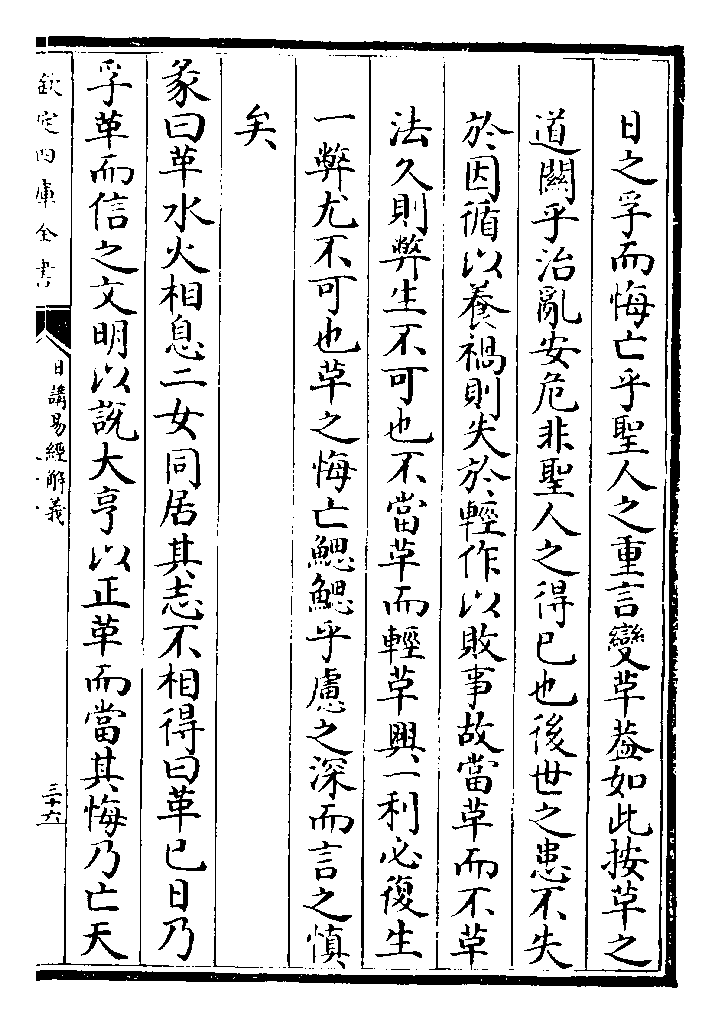 日之孚而悔亡乎聖人之重言變革葢如此按革之
道闗乎治亂安危非聖人之得已也後世之患不失
於因循以養禍則失於輕作以敗事故當革而不革
法久則弊生不可也不當革而輕革興一利必復生
一弊尤不可也革之悔亡鰓鰓乎慮之深而言之慎
矣
彖曰革水火相息二女同居其志不相得曰革已日乃
孚革而信之文明以說大亨以正革而當其悔乃亡天
欽定四庫全書
日講易經解義
三十六